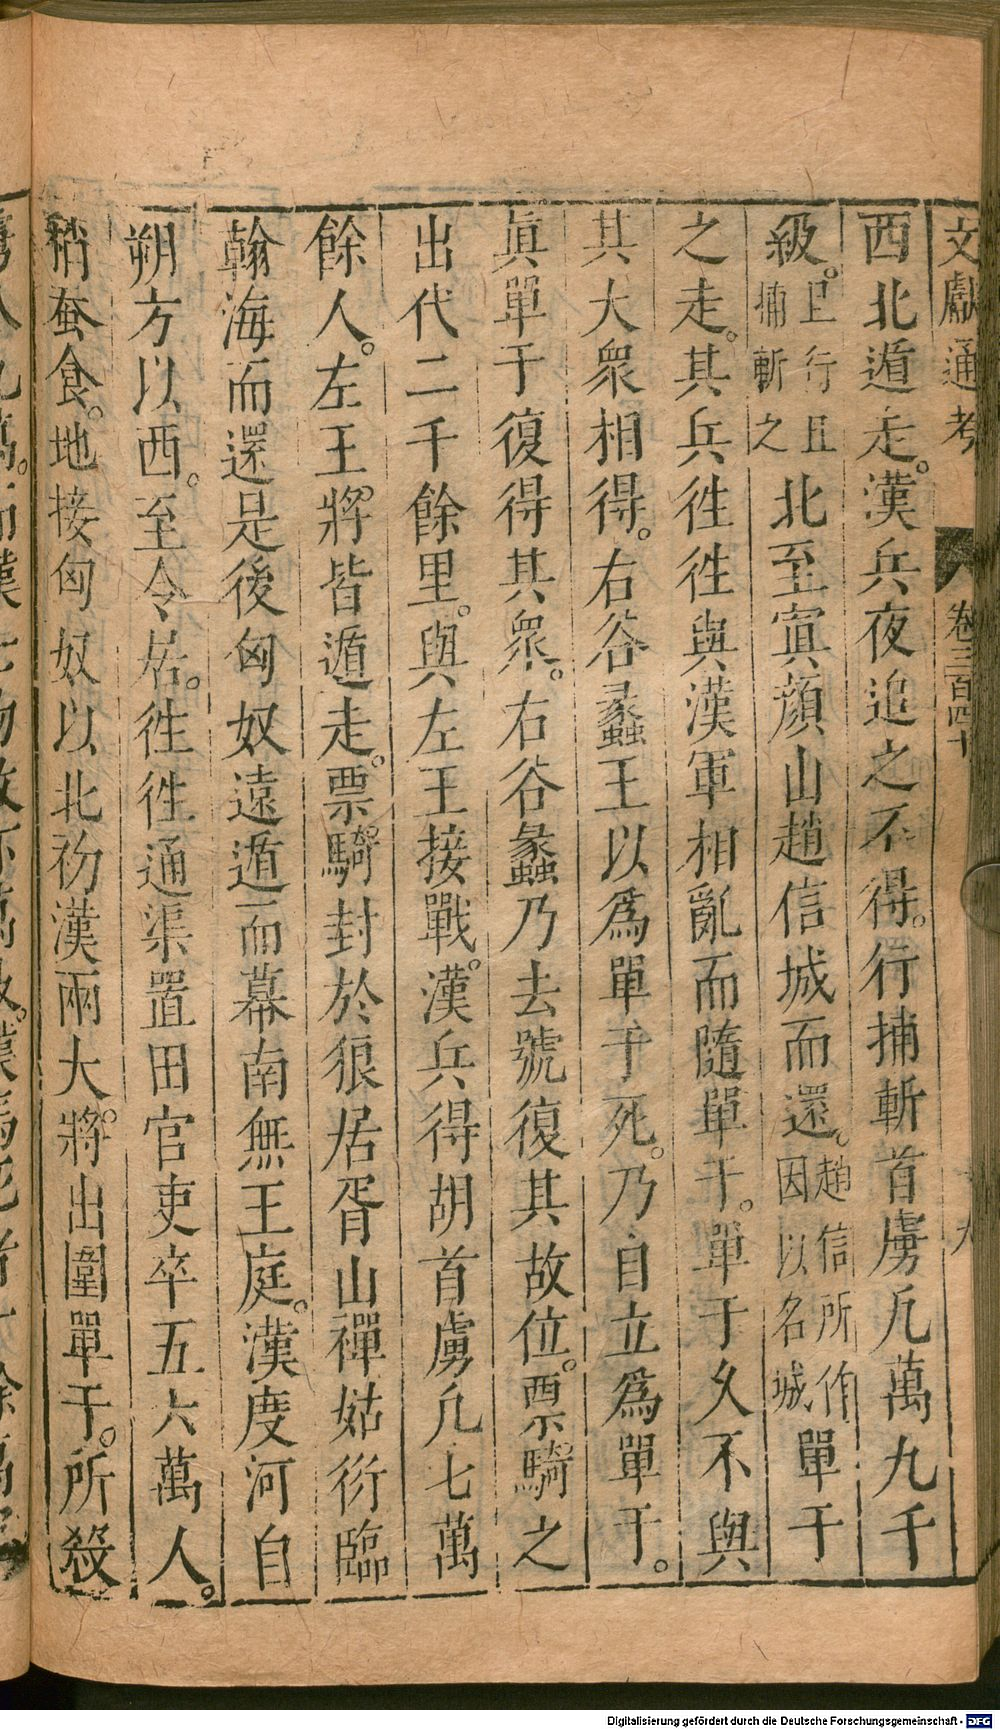 文獻通考
卷三百四十
九
西北遁走。漢兵夜追之不得。行捕斬首虜凢萬九千
級。且行且捕斬之北至寘顔山趙信城而還。趙信所作因以名城單于
之走。其兵徃徃與漢軍相亂而隨單于。單于久不與
其大衆相得。右谷蠡王以爲單于死。乃自立爲單于。
眞單于復得其衆。右谷蠡乃去號復其故位。票騎之
出代二千餘里。與左王接戰。漢兵得胡首虜凢七萬
餘人。左王將皆遁走。票騎封於狼居胥山禪姑衍臨
翰海而還是後匈奴遠遁而幕南無王庭。漢度河自
朔方以西。至令居。徃徃通渠置田官吏卒五六萬人。
稍蚕食。地接匈奴以北初漢兩大將出圍單于。所殺
Digitalisierung gefördert durch die Deutsche Forschungsgemeinschaft - DFG